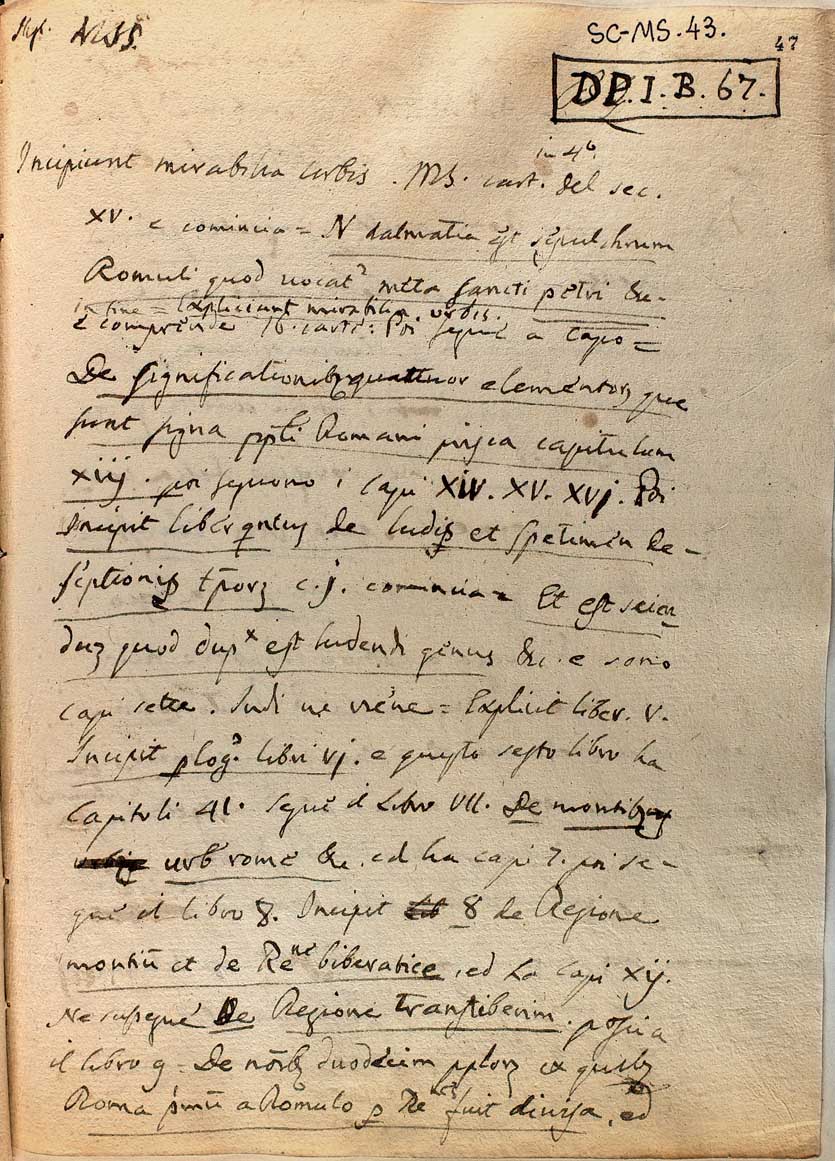 MSS.
SC-MS.43.
47
DP.I.B.67.
in 4º.
Incipiunt mirabilia urbis. MS. cart. del sec.
XV. e comincia = N dalmatia est sepulchrum
Romuli quod vocat meta sancti petri &c.
in fine = Expliciunt mirabilia urbis.
e comprende 16. carte: Poi segue a capo =
De significationibꝫ quattuor elementoꝝ que
sunt signa ppli Romani prisca capitulum
xiij. poi seguono i capi XIV. XV. XVj. Poi
Incipit liber quintus de ludis et spetimen de-
septionis tꝑorꝫ c.j. comincia = Et est scien
duꝫ quod dupx est ludendi genus &c. e sono
capi sette. Indi ne viene = Explicit liber. V.
Incipit plog. libri vj. e questo sesto libro ha
Capitoli 41. Segue il Libro VII. De montibus
urb rome &c. ed ha capi 7. poi se-
gue il libro 8. Incipit Lib 8 de Regione
montiū et de Rene biberatice, ed ha capi xij.
Ne sussegue De Regione transtiberim. poscia
il libro 9 = De nōibꝫ duodecim pploꝝ ex quibꝫ
Roma pmū a Romulo p Renes fuit divisa, ed